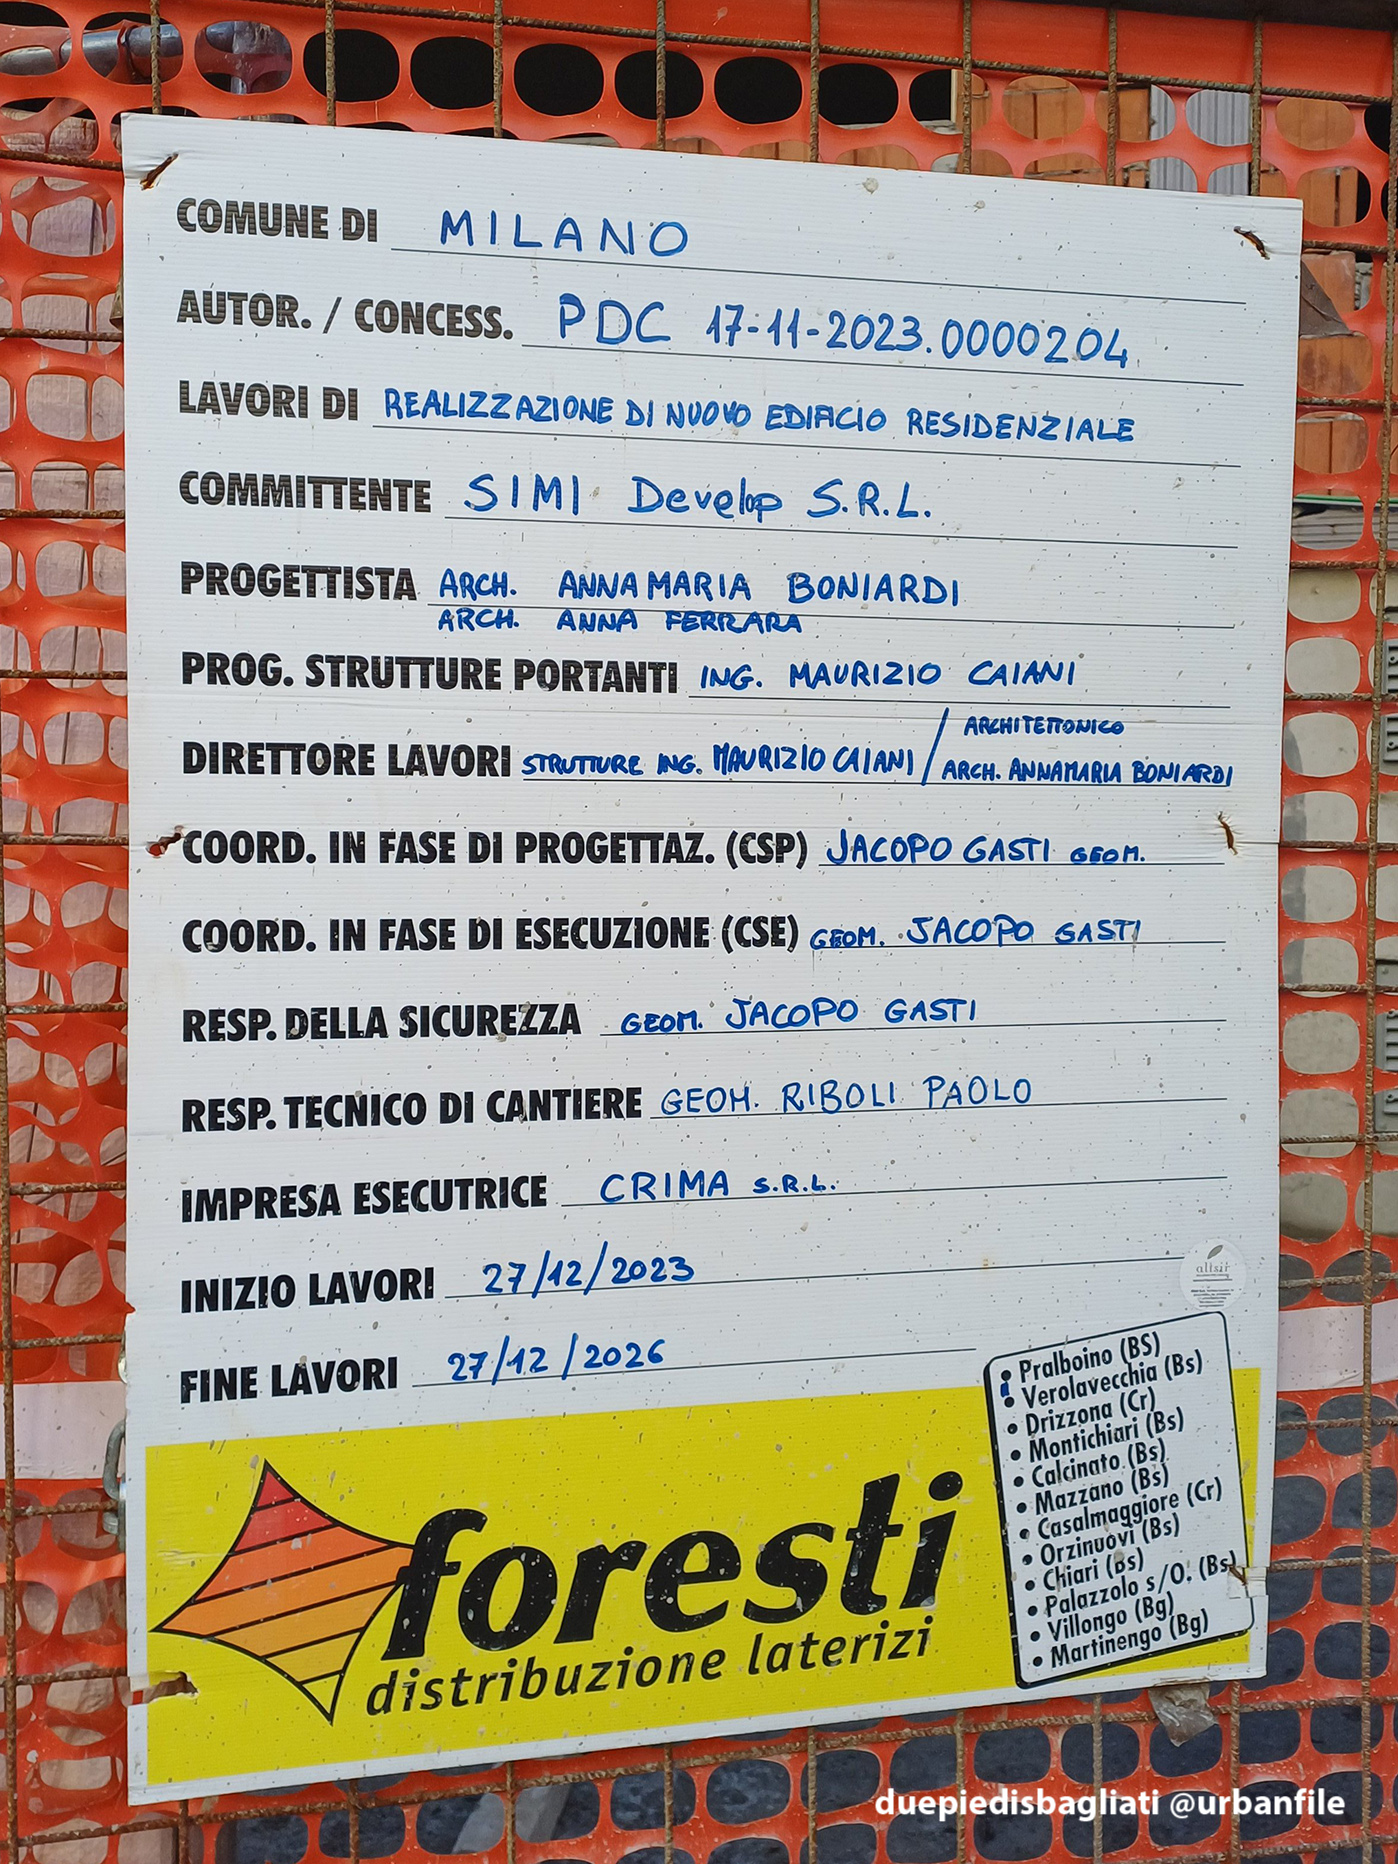 COMUNE DI MILANO
AUTOR. / CONCESS. PDC 17-11-2023.0000204
LAVORI DI REALIZZAZIONE DI NUOVO EDIFICIO RESIDENZIALE
COMMITTENTE SIMI Develop S.R.L.
PROGETTISTA ARCH. ANNAMARIA BONIARDI
ARCH. ANNA FERRARA
PROG. STRUTTURE PORTANTI ING. MAURIZIO CAIANI
DIRETTORE LAVORI STRUTTURE ING. MAURIZIO CAIANI / ARCHITETTONICO
ARCH. ANNAMARIA BONIARDI
COORD. IN FASE DI PROGETTAZ. (CSP) JACOPO GASTI GEOM.
COORD. IN FASE DI ESECUZIONE (CSE) GEOM. JACOPO GASTI
RESP. DELLA SICUREZZA GEOM. JACOPO GASTI
RESP. TECNICO DI CANTIERE GEOM. RIBOLI PAOLO
IMPRESA ESECUTRICE CRIMA S.R.L.
INIZIO LAVORI 27/12/2023
altsir
FINE LAVORI 27/12/2026
foresti
distribuzione laterizi
• Pralboino (BS)
• Verolavecchia (Bs)
• Drizzona (Cr)
• Montichiari (Bs)
• Calcinato (Bs)
• Mazzano (Bs)
• Casalmaggiore (Cr)
• Orzinuovi (Bs)
• Chiari (Bs)
• Palazzolo s/O. (Bs)
• Villongo (Bg)
• Martinengo (Bg)
duepiedisbagliati @urbanfile